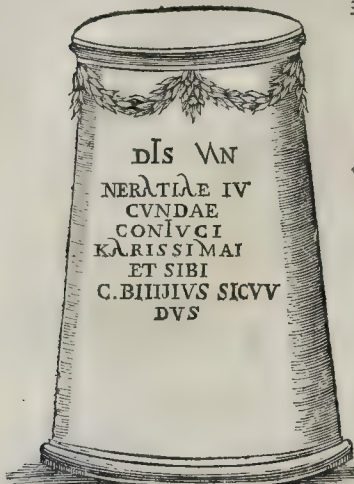 DIS VAN
NERATIAE IV
CVNDAE
CONIVCI
KARISSIMAI
ET SIBI
C. BIIIJIVS SICVV
DVS